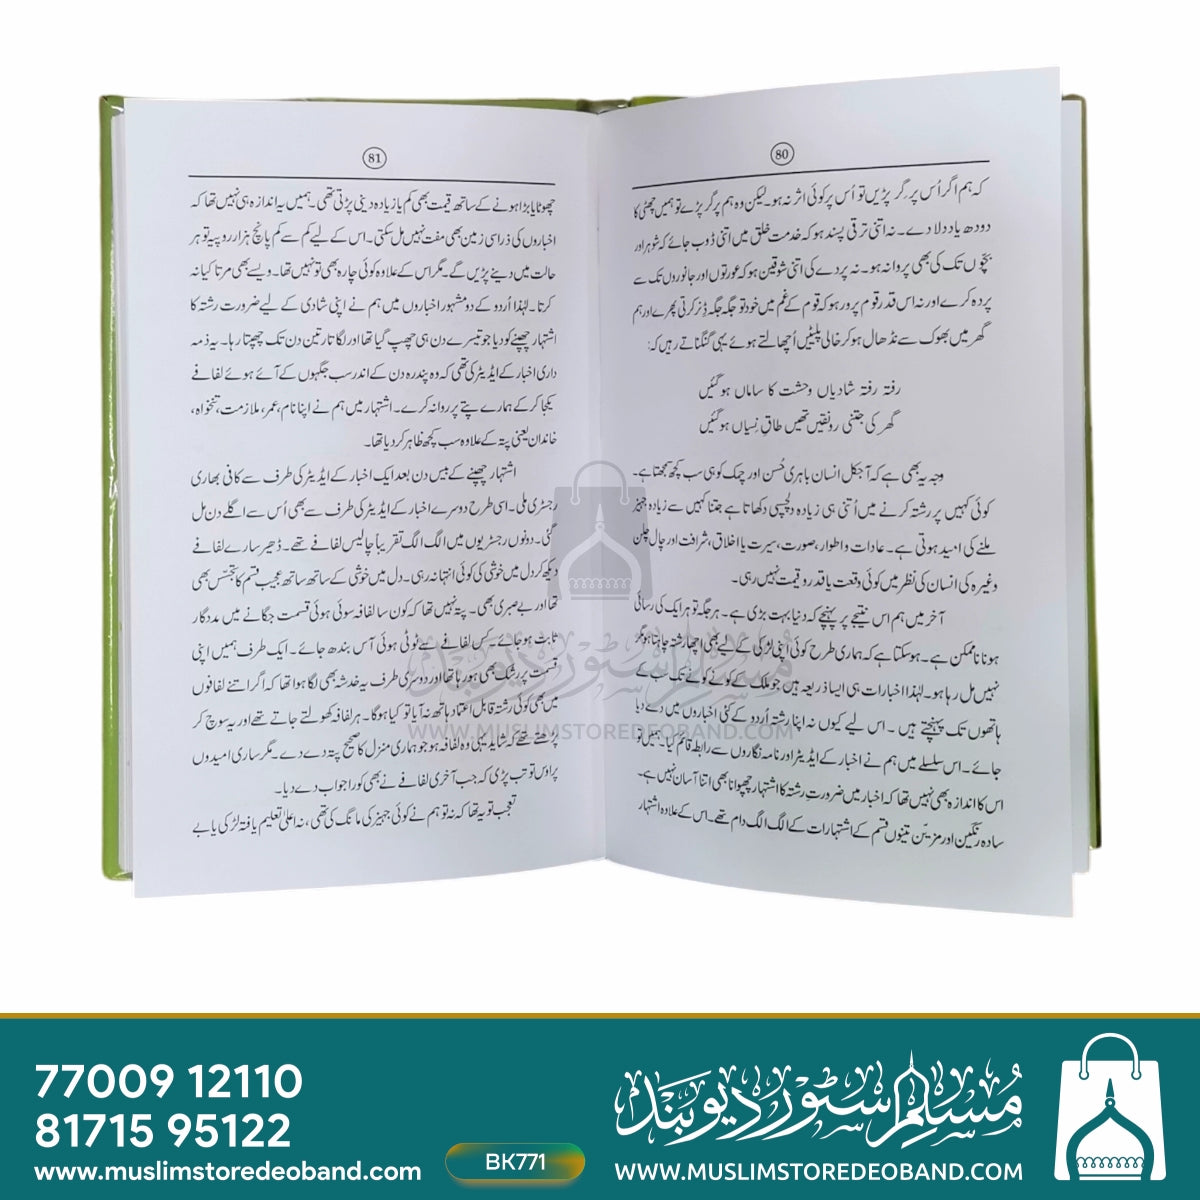 80
کہ ہم اگر اُس پر گر پڑیں تو اُس پر کوئی اثر نہ ہو۔ لیکن وہ ہم پر گر پڑے تو ہمیں چھٹی کا
دودھ یاد دلا دے۔ نہ اتنی ترقی پسند ہو کہ خدمت خلق میں اتنی ڈوب جائے کہ شوہر اور
بچّوں تک کی بھی پروا نہ ہو۔ نہ پردے کی اتنی شوقین ہو کہ عورتوں اور جانوروں تک سے
پردہ کرے اور نہ اس قدر قوم پرور ہو کہ قوم کے غم میں خود تو جگہ جگہ ڈِنر کرتی پھرے اور ہم
گھر میں بھوک سے نڈھال ہو کر خالی پلیٹیں اُچھالتے ہوئے یہی گنگناتے رہیں کہ:
رفتہ رفتہ شادیاں وحشت کا ساماں ہو گئیں
گھر کی جتنی رونقیں تھیں طاقِ نِسیاں ہو گئیں
وجہ یہ بھی ہے کہ آجکل انسان باہری حُسن اور چمک کو ہی سب کچھ سمجھتا ہے۔
کوئی کہیں پر رشتہ کرنے میں اُتنی ہی زیادہ دلچسپی دکھاتا ہے جتنا کہیں سے زیادہ جہیز
ملنے کی امید ہوتی ہے۔ عادات و اطوار، صورت، سیرت یا اخلاق، شرافت اور چال چلن
وغیرہ کی انسان کی نظر میں کوئی وقعت یا قدر و قیمت نہیں رہی۔
آخر میں ہم اس نتیجے پر پہنچے کہ دنیا بہت بڑی ہے۔ ہر جگہ تو ہر ایک کی رسائی
ہونا ناممکن ہے۔ ہو سکتا ہے کہ ہماری طرح کوئی اپنی لڑکی کے لیے بھی اچھا رشتہ چاہتا ہو مگر
نہیں مل رہا ہو۔ لہٰذا اخبارات ہی ایسا ذریعہ ہیں جو ملک کے کونے کونے تک سب کے
ہاتھوں تک پہنچتے ہیں۔ اس لیے کیوں نہ اپنا رشتہ اُردو کے کئی اخباروں میں دے دیا
جائے۔ اس سلسلے میں ہم نے اخبار کے ایڈیٹر اور نامہ نگاروں سے رابطہ قائم کیا۔ ہمیں تو
اس کا اندازہ بھی نہیں تھا کہ اخبار میں ضرورتِ رشتہ کا اشتہار چھپوانا بھی اتنا آسان نہیں ہے۔
سادہ رنگین اور مزیّن تینوں قسم کے اشتہارات کے الگ الگ دام تھے۔ اس کے علاوہ اشتہار
81
چھوٹا یا بڑا ہونے کے ساتھ قیمت بھی کم یا زیادہ دینی پڑتی تھی۔ ہمیں یہ اندازہ ہی نہیں تھا کہ
اخباروں کی ذرا سی زمین بھی مفت نہیں مل سکتی۔ اس کے لیے کم سے کم پانچ ہزار روپیہ تو ہر
حالت میں دینے پڑیں گے۔ مگر اس کے علاوہ کوئی چارہ بھی تو نہیں تھا۔ ویسے بھی مرتا کیا نہ
کرتا۔ لہٰذا اُردو کے دو مشہور اخباروں میں ہم نے اپنی شادی کے لیے ضرورت رشتہ کا
اشتہار چھپنے کو دیا جو تیسرے دن ہی چھپ گیا تھا اور لگاتار تین دن تک چھپتا رہا۔ یہ ذمہ
داری اخبار کے ایڈیٹر کی تھی کہ وہ پندرہ دن کے اندر سب جگہوں کے آئے ہوئے لفافے
یکجا کر کے ہمارے پتے پر روانہ کرے۔ اشتہار میں ہم نے اپنا نام، عمر، ملازمت، تنخواہ،
خاندان یعنی پتہ کے علاوہ سب کچھ ظاہر کر دیا تھا۔
اشتہار چھپنے کے بیس دن بعد ایک اخبار کے ایڈیٹر کی طرف سے کافی بھاری
رجسٹری ملی۔ اسی طرح دوسرے اخبار کے ایڈیٹر کی طرف سے بھی اُس سے اگلے دن مل
گئی۔ دونوں رجسٹریوں میں الگ الگ تقریباً چالیس لفافے تھے۔ ڈھیر سارے لفافے
دیکھ کر دل میں خوشی کی کوئی انتہا نہ رہی۔ دل میں خوشی کے ساتھ ساتھ عجیب قسم کا تجسّس بھی
تھا اور بے صبری بھی۔ پتہ نہیں تھا کہ کون سا لفافہ سوئی ہوئی قسمت جگانے میں مددگار
ثابت ہو جائے۔ کس لفافے سے ٹوٹی ہوئی آس بندھ جائے۔ ایک طرف ہمیں اپنی
قسمت پر رشک بھی ہو رہا تھا اور دوسری طرف یہ خدشہ بھی لگا ہوا تھا کہ اگر اتنے لفافوں
میں بھی کوئی رشتہ قابل اعتماد ہاتھ نہ آیا تو کیا ہوگا۔ ہر لفافہ کھولتے جاتے تھے اور یہ سوچ کر
پڑھتے تھے کہ شاید یہی وہ لفافہ ہو جو ہماری منزل کا صحیح پتہ دے دے۔ مگر ساری امیدوں
پر اوس تو تب پڑی کہ جب آخری لفافے نے بھی کورا جواب دے دیا۔
تعجب تو یہ تھا کہ نہ تو ہم نے کوئی جہیز کی مانگ کی تھی، نہ اعلیٰ تعلیم یافتہ لڑکی یا بے
مسلم سٹور دیوبند
WWW.MUSLIMSTOREDEOBAND.COM
77009 12110
81715 95122
www.muslimstoredeoband.com
BK771
مسلم سٹور دیوبند
WWW.MUSLIMSTOREDEOBAND.COM